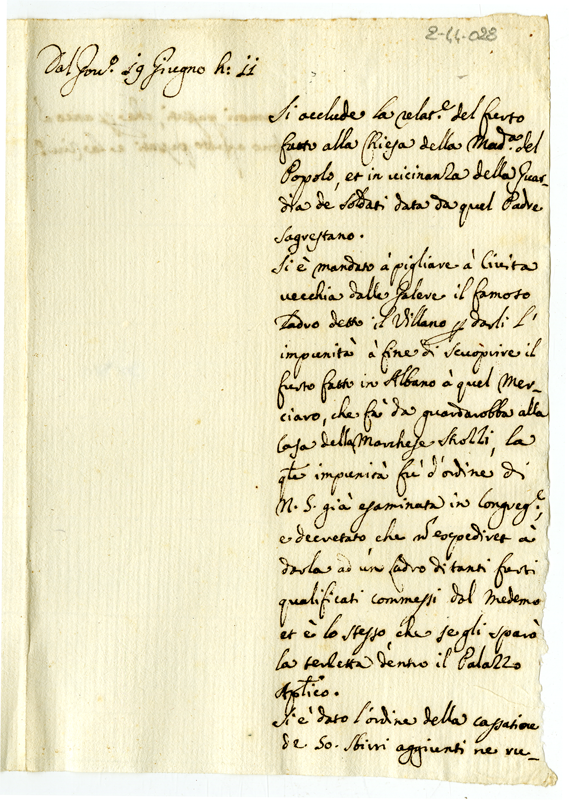 2-44-023
Dal Gov.º 19 Giugno h: 11
Si acclude la relat.e del furto
fatto alla Chiesa della Mad.a del
Popolo, et in vicinanza della Guar-
dia de Soldati data da quel Padre
Sagrestano.
Si è mandato à pigliare à Civita
vecchia dalle Galere il famoso
Ladro detto il Villano p darli l'
impunità à fine di scuoprire il
furto fatto in Albano à quel Mer-
ciaro, che fà da guardarobba alla
Casa della Marchese, la
qle impunità fu d'ordine di
N. S. già esaminata in Congreg.e,
e decretato che à
darla ad un Ladro di tanti furti
qualificati commessi dal Medemo
et è lo stesso, che se gli sparò
la terzetta dentro il Palazzo
Aplico.
Si è dato l'ordine della cassatione
de 50. Sbirri aggiunti ne ru-